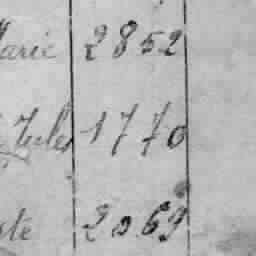 Marie 2852
Jules 1770
ste 2069